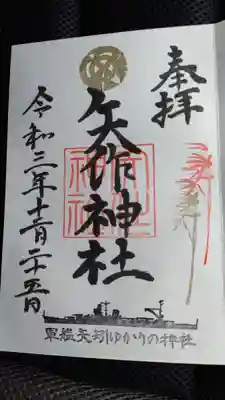 奉拝
矢作神社
令和三年十二月二十五日
軍艦矢矧ゆかりの神社